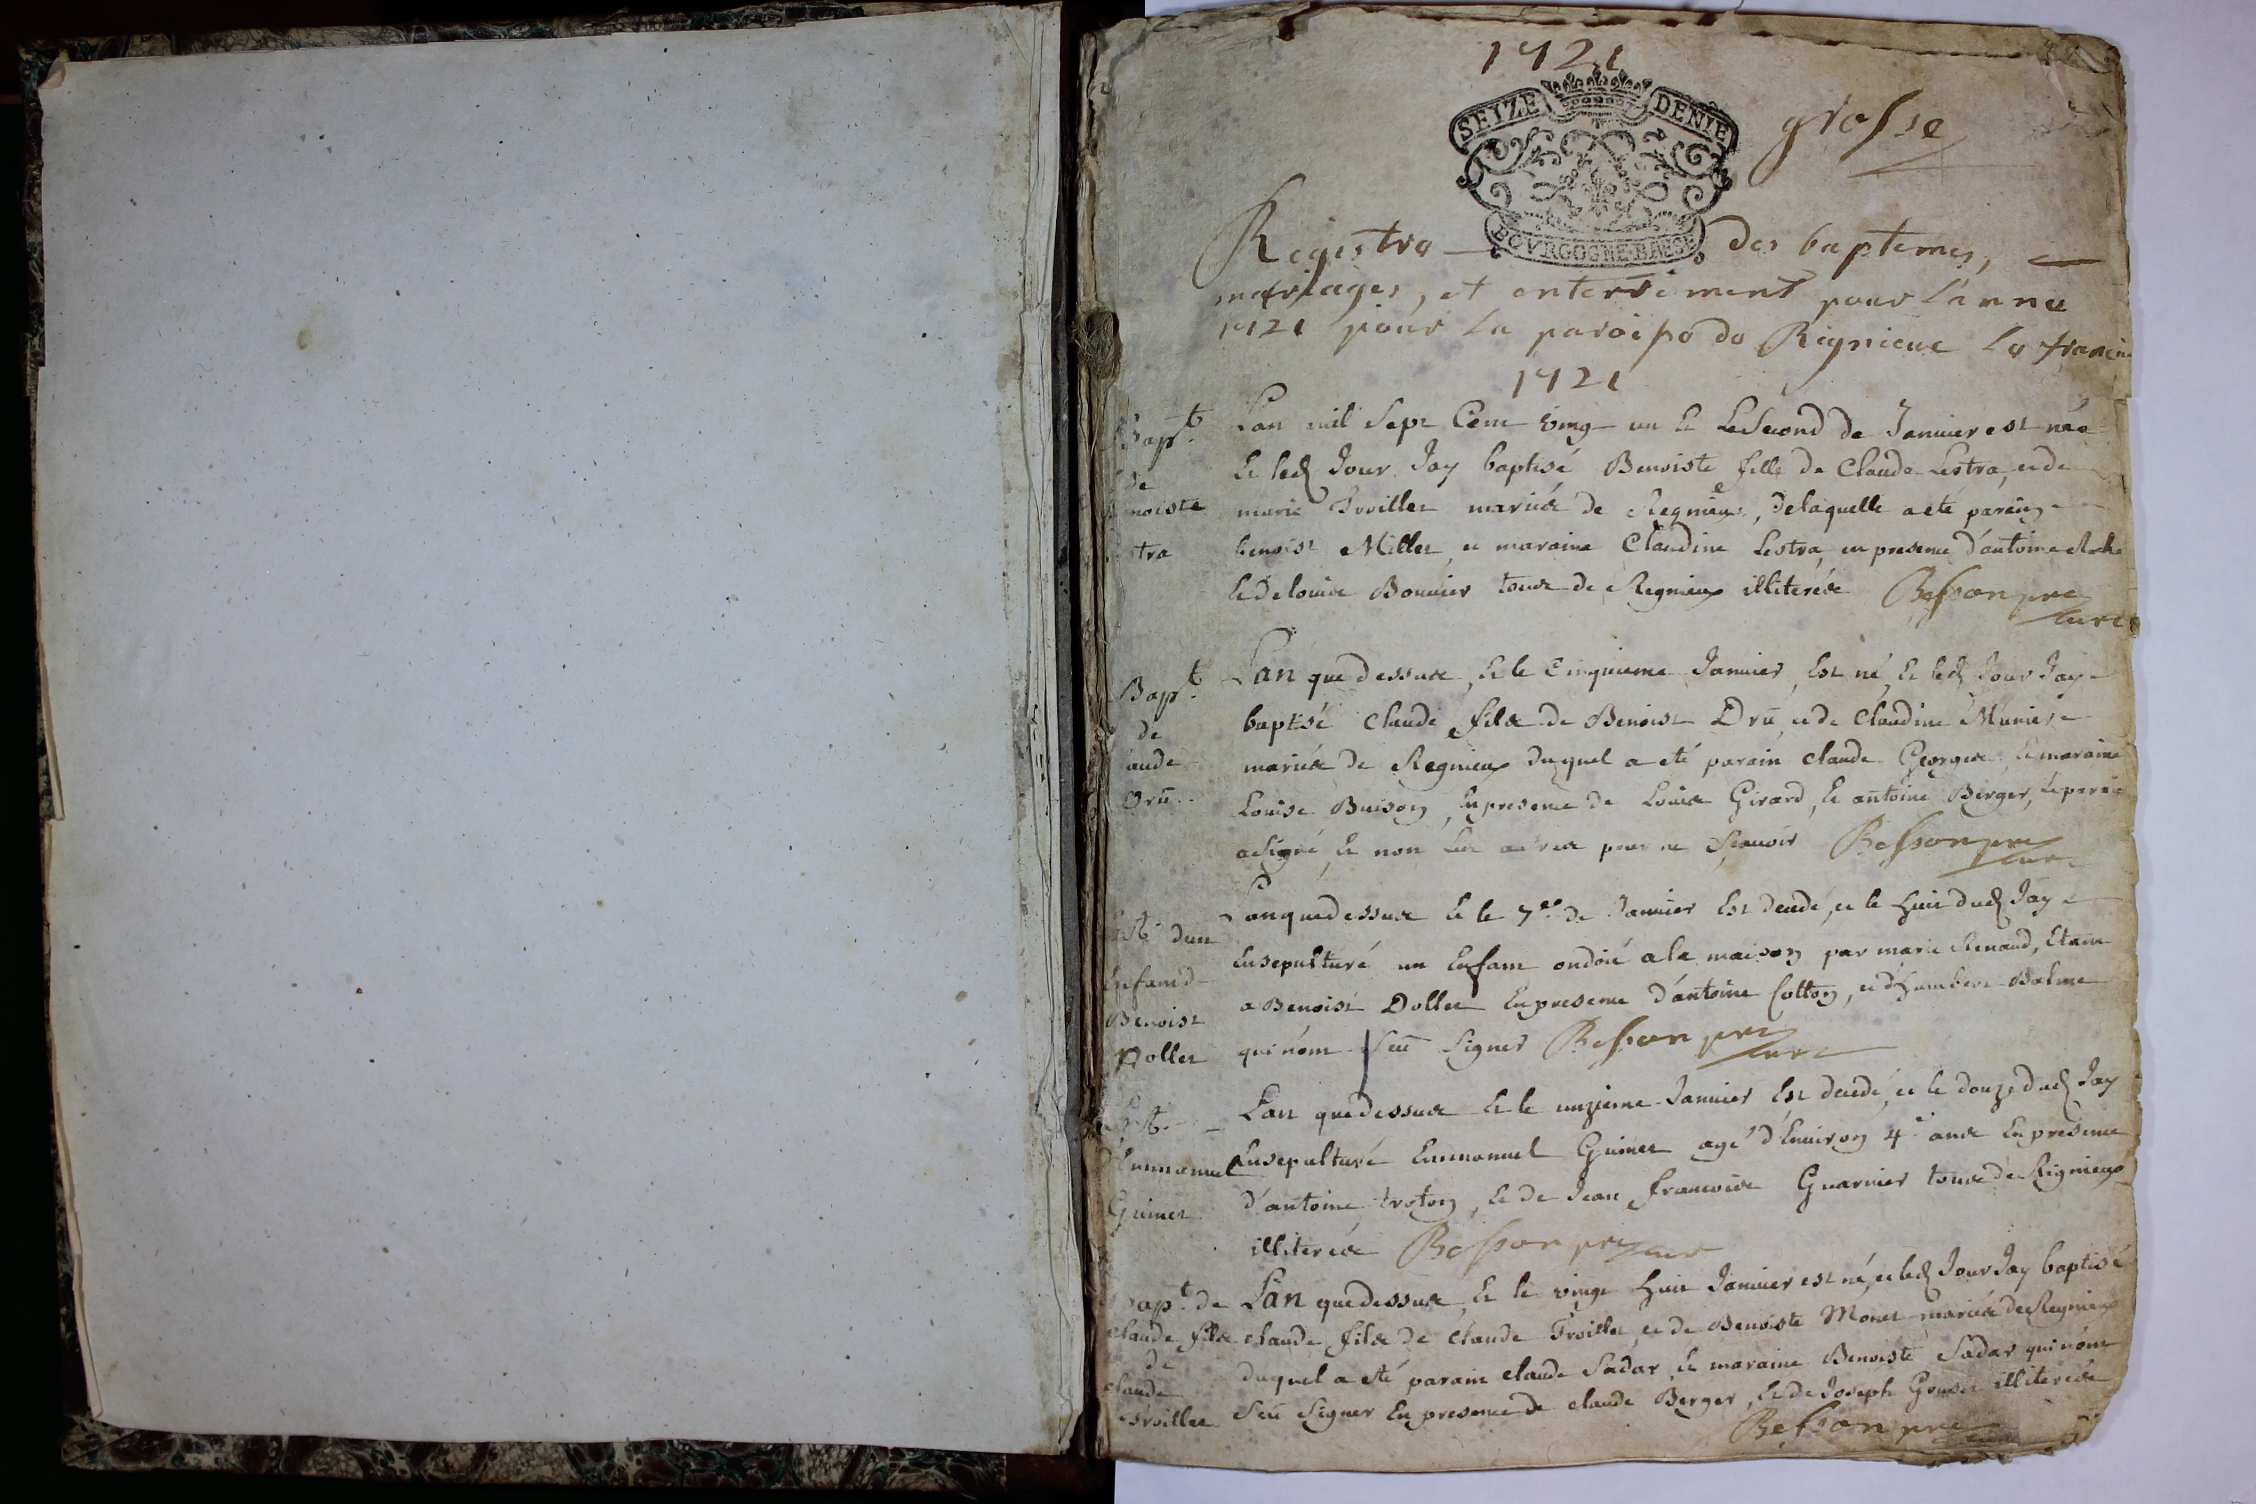 1721
SEIZE DENIE
grosse
BOVRGOGNE BRESSE
Registre des baptemes,
mariages, et enterrement pour l'anne
1721 pour la paroisse de Rignieux le franc
1721
Bapt.
de
noiste
stra
Lan mil sept Cent ving un Et Le Second de Janvier est née
Et led Jour Jay baptisé Benoiste fille de Claude Lestra, et de
marie Troillet mariés de Regnieux, de laquelle a eté parein
benoist Millet et maraine Claudine Lestra en presence d'antoine
Et de louise Bouvier tous de Regnieux illiterés Besson pre
curé
Bapt.
de
aude
Dru
Lan que dessus, Et le Cinquieme Janvier, Est né, Et led Jour Jay
baptisé Claude fils de Benoist Dru et de Claudine Munier
mariés de Regnieux duquel a eté parain claude George et maraine
Louise Buison, En presence de Louis Girard, Et antoine Berger, le parain
a signé, Et non les autres pour ne scavoir Besson pre
curé
dun
Enfant d
Benoist
Dollet
Lan que dessus Et le 7e de Janvier Est decedé, et le huit dud Jay
Ensepulturé un Enfant ondoié a la maison par marie Renaud, Etant
a Benoist Dollet En presence d'antoine Cotton, et d'humbert Balme
qui n'ont sceu signer Besson pre
curé
d'Emmanuel
Guinet
Lan que dessus Et le unzieme Janvier Est decedé, et le douze dud Jay
Ensepulturé Emmanuel Guinet agé d'Environ 4 ans En presence
d'antoine troton, Et de Jean francois Guarnier tous de Rignieux
illiterés Besson pre curé
Bapt. de
claude fils
de
claude
Troillet
Lan que dessus, Et le vingt huit Janvier est né, et led Jour Jay baptisé
claude fils de Claude Troillet et de Benoiste Monet mariés de Regnieux
duquel a eté parain claude Sadar, Et maraine Benoiste Sadar qui n'ont
sceu signer En presence de claude Berger, Et de Joseph illiterés
Besson pre